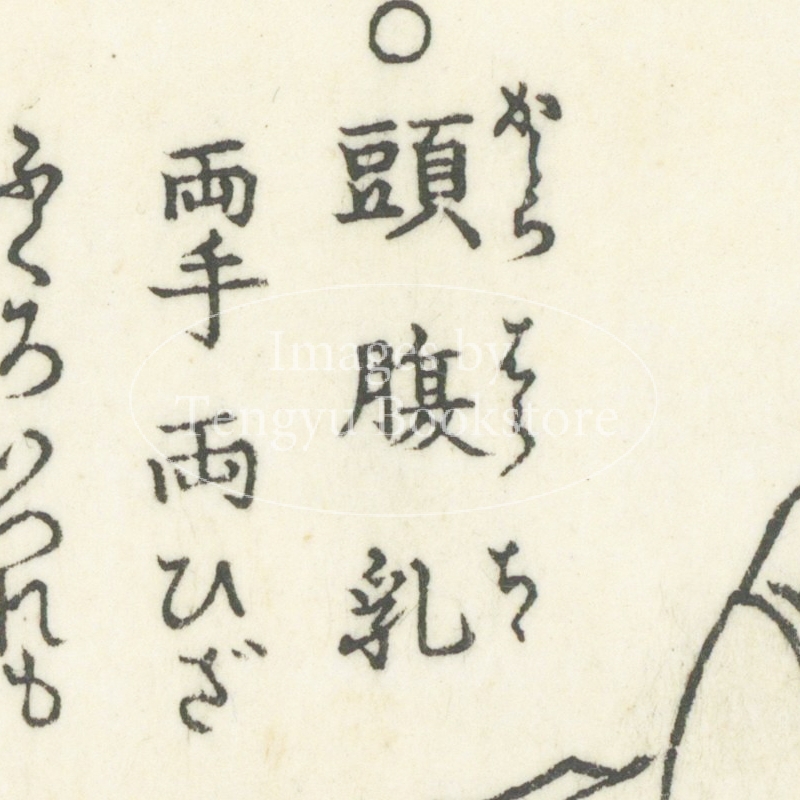 ○
頭 腹 乳
かしら はら ち
両手 両ひざ
ふくろいつれも
Images by
Tengyu Bookstore